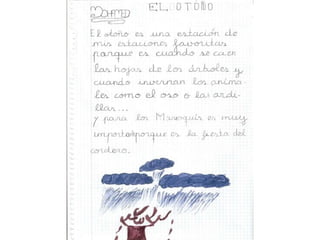 MOHAMED EL OTOÑO
El otoño es una estación de
mis estaciones favoritas
porque es cuando se caen
las hojas de los árboles y
cuando invernan los anima-
les como el oso o las ardi-
llas...
y para los Marroquís es muy
importante porque es la fiesta del
cordero.